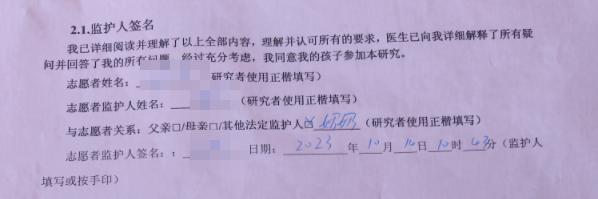 2.1.监护人签名
我已详细阅读并理解了以上全部内容，理解并认可所有的要求，医生已向我详细解释了所有疑
问并回答了我的所有问题，经过充分考虑，我同意我的孩子参加本研究。
志愿者姓名： 研究者使用正楷填写）
志愿者监护人姓名： （研究者使用正楷填写）
与志愿者关系：父亲□/母亲□/其他法定监护人☑ 奶奶 （研究者使用正楷填写）
志愿者监护人签名：： 日期： 2023 年 10 月 16 日 10 时 43 分（监护人
填写或按手印）